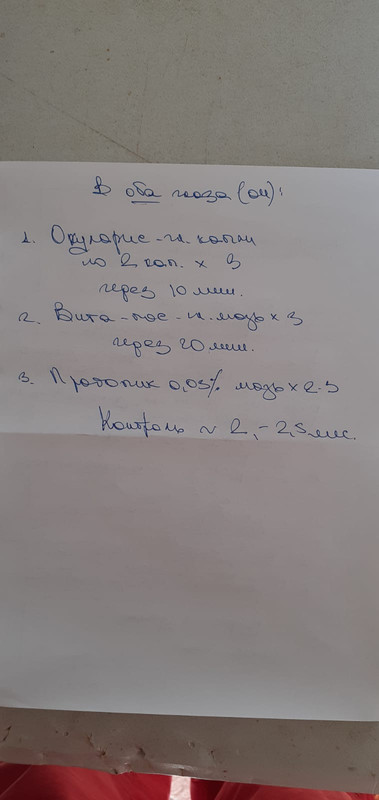 В оба глаза (ОИ):
1. Окуларис - гл. капли
по 2 кап. x 3
через 10 мин.
2. Вита-пос - гл. мазь x 3
через 20 мин.
3. Протопик 0,03% мазь x 2
Контроль ~ 2,-2,5 мес.